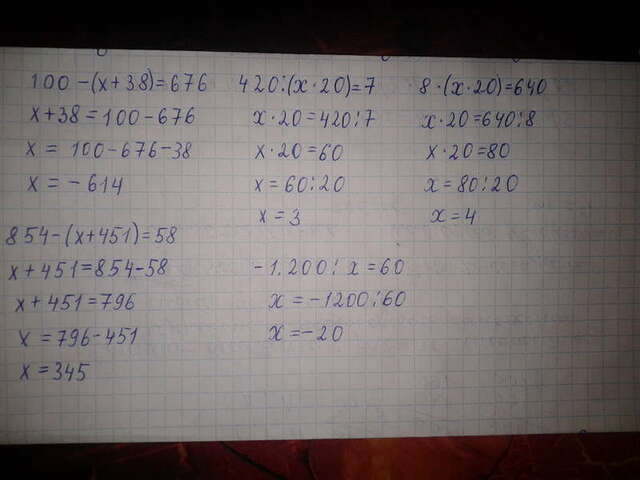 100-(x+38)=676
x+38=100-676
x = 100-676-38
x = -614
420:(x·20)=7
x·20=420:7
x·20=60
x=60:20
x=3
8·(x·20)=640
x·20=640:8
x·20=80
x=80:20
x=4
854-(x+451)=58
x+451=854-58
x+451=796
x=796-451
x=345
-1.200: x=60
x=-1200:60
x=-20